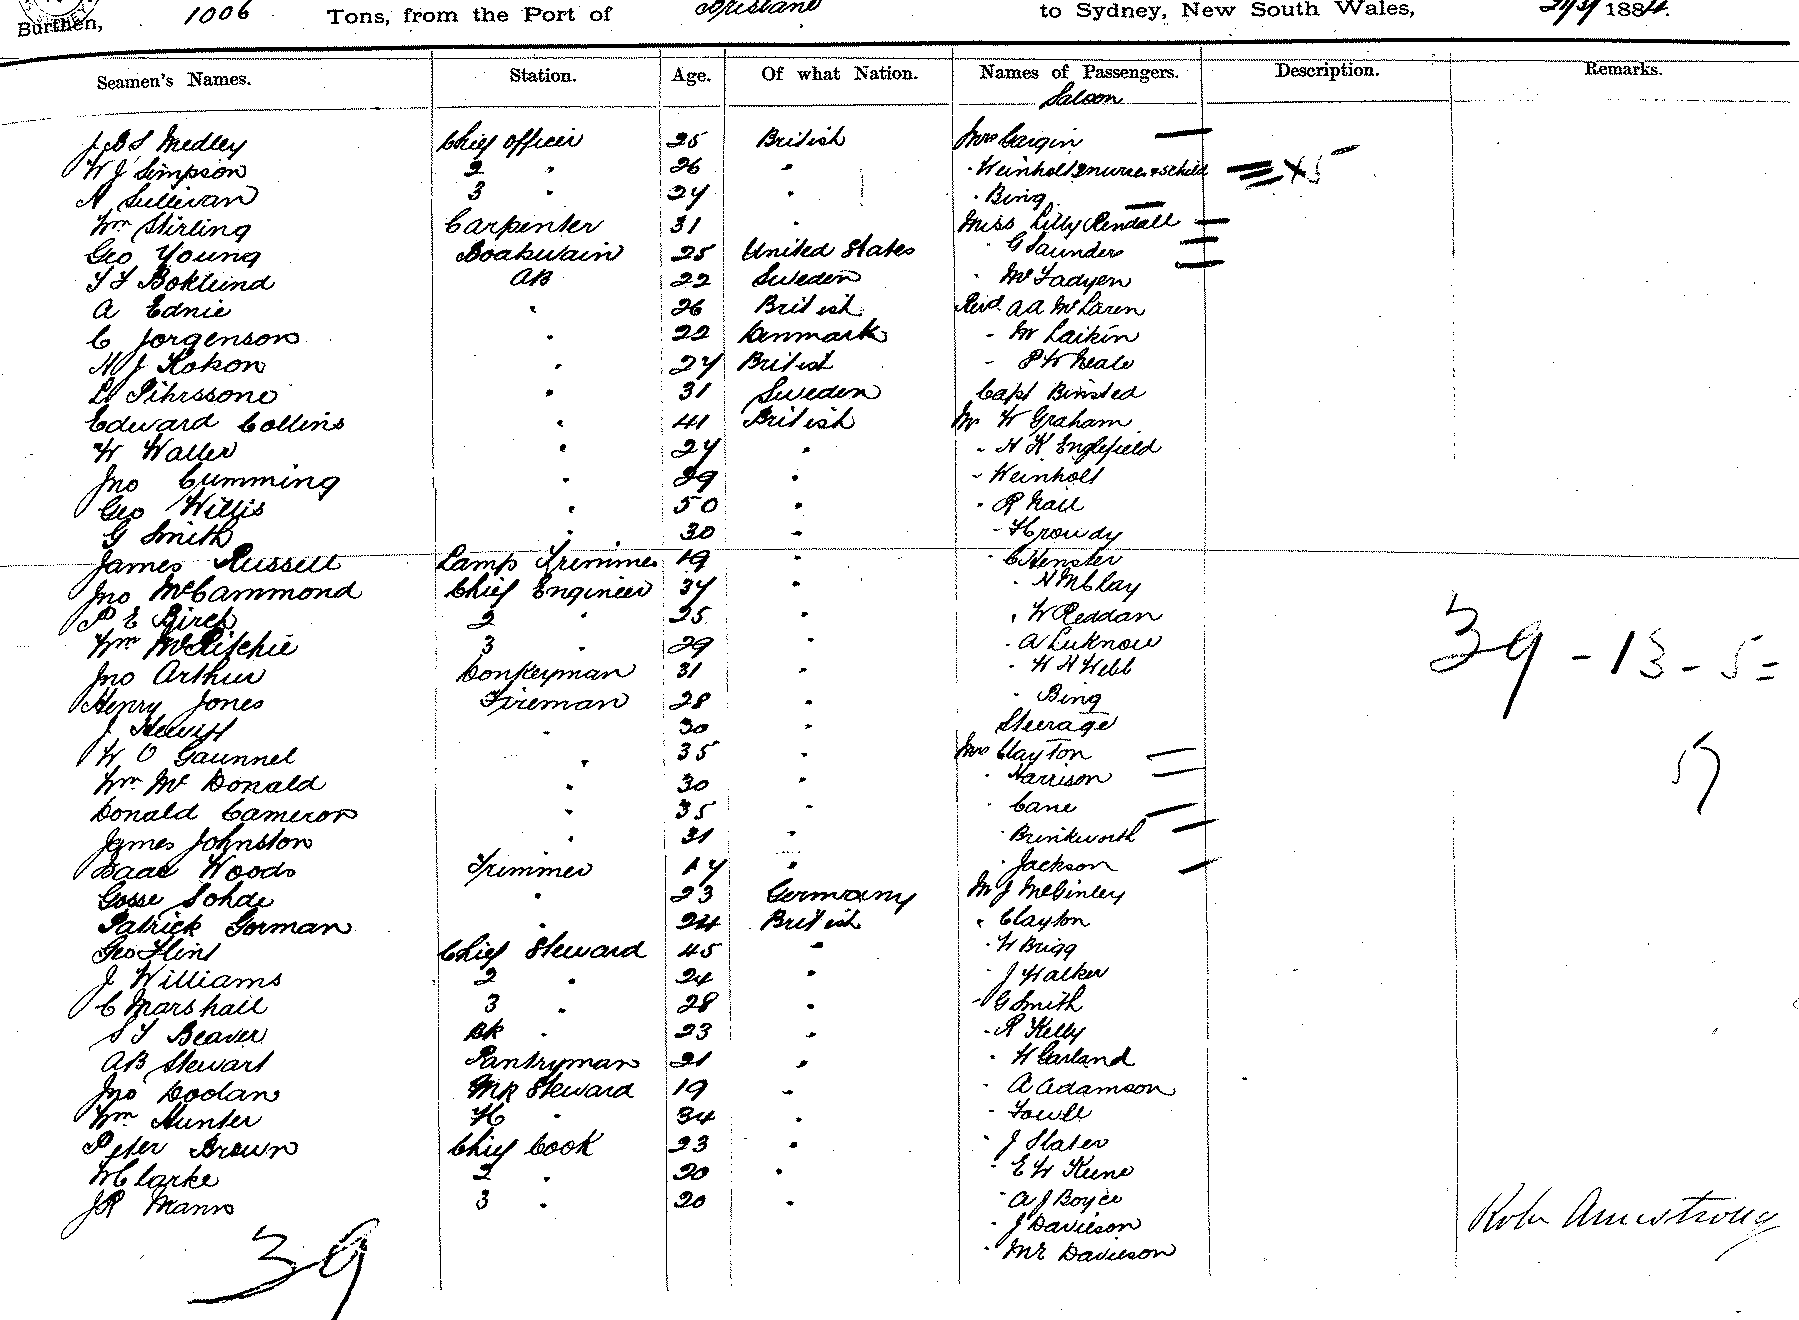 Burthen, 1006 Tons, from the Port of Brisbane to Sydney, New South Wales, 1884.
Seamen's Names. Station. Age. Of what Nation. Names of Passengers. Description. Remarks.
Saloon
Medley Chief officer 25 British Mrs Cargin
W J Simpson 2 " 26 " " Weinholt 2 nurses & 5 child X 5
A Sullivan 3 " 24 " " Bing
Wm Stirling Carpenter 31 " Miss Lilly Rendall
Geo Young Boatswain 25 United States " G Saunders
Boklund AB 22 Sweden " McFadyen
A Ednie " 26 British Revd A A McLaren
C Jorgenson " 22 Denmark " Mr Laikin
H J Kokon " 24 British " P W Neale
Pihrssone " 31 Sweden Capt Binsted
Edward Collins " 41 British Mr W Graham
W Waller " 24 " " H K Englefield
Jno Cumming " 29 " " Weinholt
Geo Willis " 50 " " R Hall
G Smith " 30 " " Howdy
James Russell Lamp Trimmer 19 " " C Henster
Jno McCammond Chief Engineer 34 " " H McClay
P E Birch 2 " 25 " W Reddan
Wm McRitchie 3 " 29 " A Luknow
Jno Arthur Donkeyman 31 " " W H Webb
39 - 13 - 5 =
Henry Jones Fireman 28 " " Bing
J Hewitt " 30 " Steerage
W O Gaunnel " 35 " Mrs Clayton
Wm McDonald " 30 " " Harrison
57
Donald Cameron " 35 " " Cane
James Johnston " 31 " " Brinkworth
Isaac Woods Trimmer 17 " " Jackson
Gosse Sohde " 23 Germany Mr J McGinley
Patrick Gorman " 24 British " Clayton
Geo Flint Chief Steward 45 " " W Brigg
J Williams 2 " 24 " " J Walker
C Marshall 3 " 28 " " G Smith
S T Beaver Bk " 23 " " R Kelly
A B Stewart Pantryman 21 " " W Garland
Jno Doolan Steward 19 " " A Adamson
Wm Hunter " 34 " " Towll
Peter Brown Chief Cook 23 " " J Slater
W Clarke 2 " 20 " " E W Keene
J R Mann 3 " 20 " " A J Boyce
" J Davieson
Robt Armstrong
" Mr Davieson
39